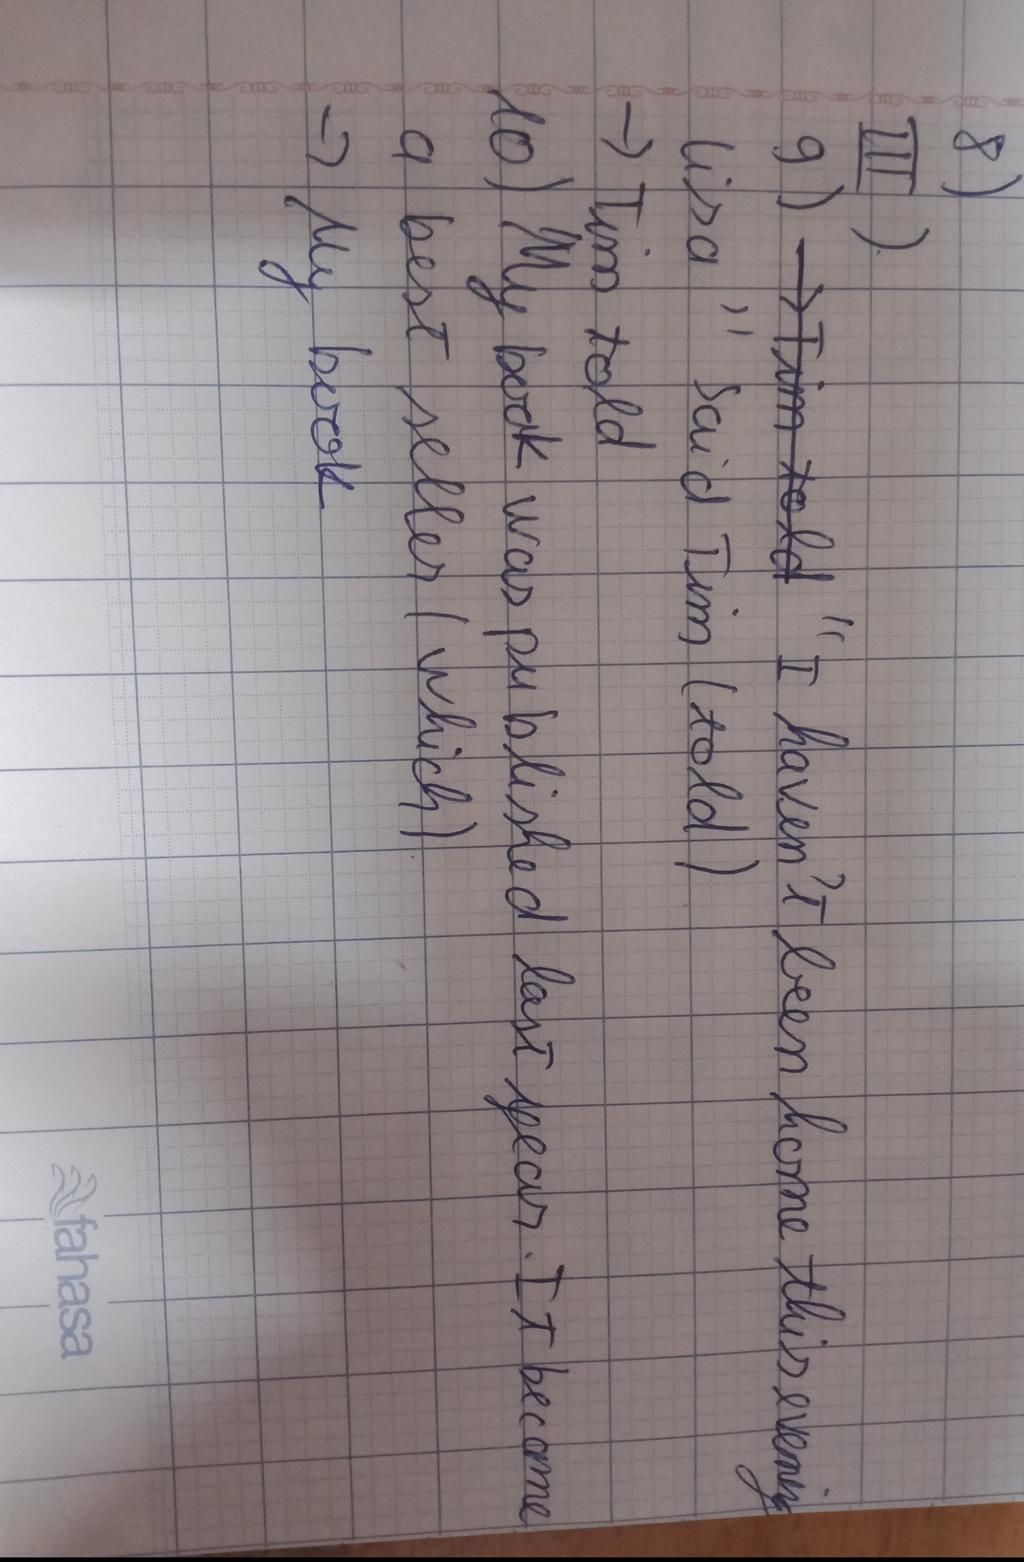 8)
III)
9) → Tim told "I haven't been home this evenig
lisa" said Tim (told)
→ Tim told
10) My book was published last year. It become
a best seller (which)
→ My book
fahasa